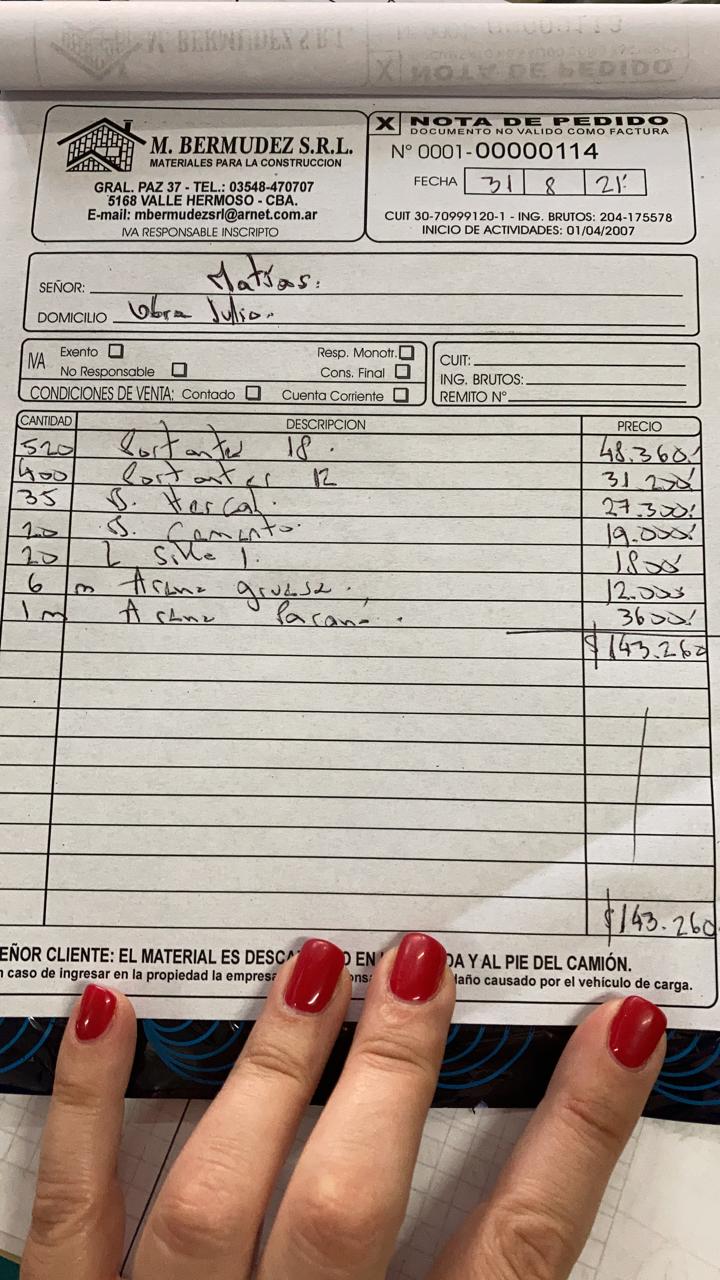 M. BERMUDEZ S.R.L.
MATERIALES PARA LA CONSTRUCCION
GRAL. PAZ 37 - TEL.: 03548-470707
5168 VALLE HERMOSO - CBA.
E-mail: mbermudezsrl@arnet.com.ar
IVA RESPONSABLE INSCRIPTO
X NOTA DE PEDIDO
DOCUMENTO NO VALIDO COMO FACTURA
N° 0001-00000114
FECHA 31 8 21
CUIT 30-70999120-1 - ING. BRUTOS: 204-175578
INICIO DE ACTIVIDADES: 01/04/2007
SEÑOR: Matias.
DOMICILIO Obra Julio.
IVA Exento Resp. Monotr.
No Responsable Cons. Final
CONDICIONES DE VENTA: Contado Cuenta Corriente
CUIT:
ING. BRUTOS:
REMITO N°
CANTIDAD DESCRIPCION PRECIO
520 Portantes 18. 48.360
400 Portantes 12 31.200
35 B. Hercal. 27.300
20 B. Cemento. 19.000
20 L 1. 1800
6 m Arena gruesa. 12.000
1 m Arena Parana. 3600
$143.260
$143.260
SEÑOR CLIENTE: EL MATERIAL ES EN Y AL PIE DEL CAMIÓN.
caso de ingresar en la propiedad la empresa causado por el vehículo de carga.